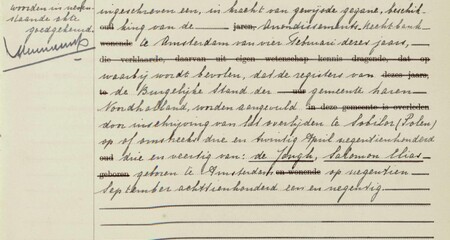 woorden in neven-
staande akte
goedgekeurd.
ingeschreven een, in kracht van gewijsde gegane, beschik-
oud king van de jaren, Arrondissements-Rechtbank
wonende te Amsterdam van vier Februari dezes jaars,
die verklaarde, daarvan uit eigen wetenschap kennis dragende, dat op
waarbij wordt bevolen, dat de registers van dezes jaars,
te de Burgelijke Stand der gemeente haren
Noordholland, worden aangevuld in deze gemeente is overleden
door inschrijving van het overlijden te Sobibor (Polen)
op of omstreeks drie en twintig April negentienhonderd
oud drie en veertig van: de Jongh, Salomon Elias-
geboren geboren te Amsterdam, en wonende op negentien
September achttienhonderd een en negentig.